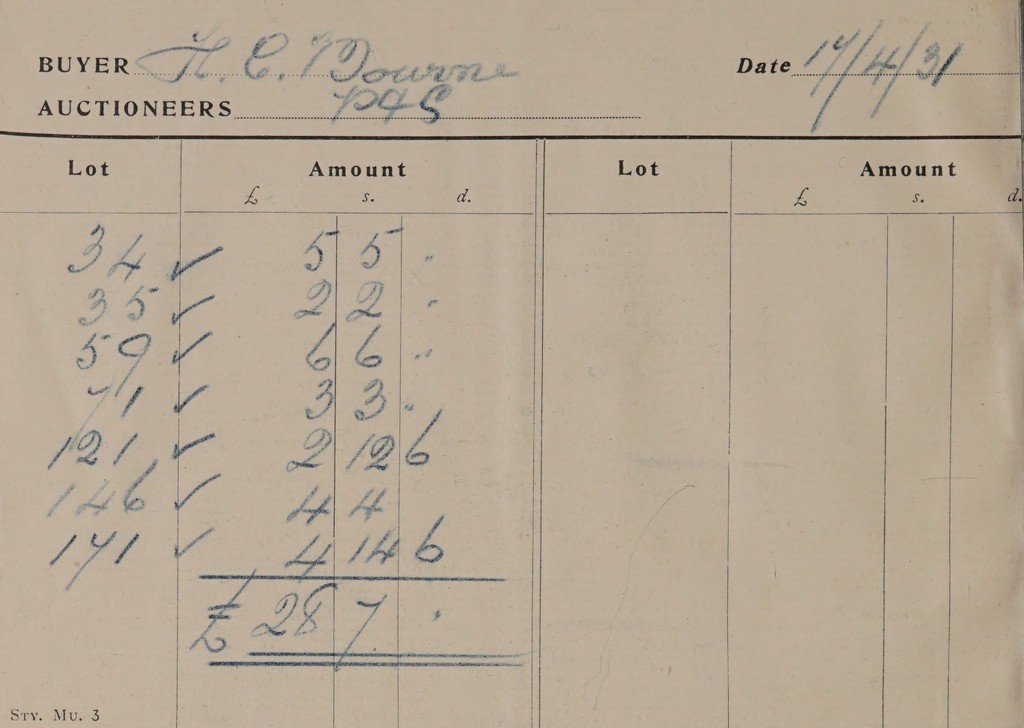 BUYER H. C. Bourne Date 17/4/31
AUCTIONEERS P & S
Lot Amount Lot Amount
£ s. d. £ s. d.
34 ✓ 5 5 "
35 ✓ 2 2 "
59 ✓ 6 6 "
71 ✓ 3 3 "
121 ✓ 2 12 6
146 ✓ 4 4
171 ✓ 4 14 6
£ 28 7 "
STY. MU. 3